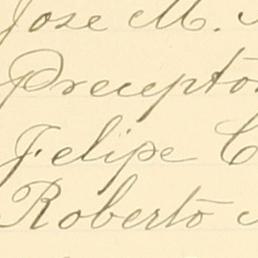 Jose M.
Precepto
Felipe C
Roberto